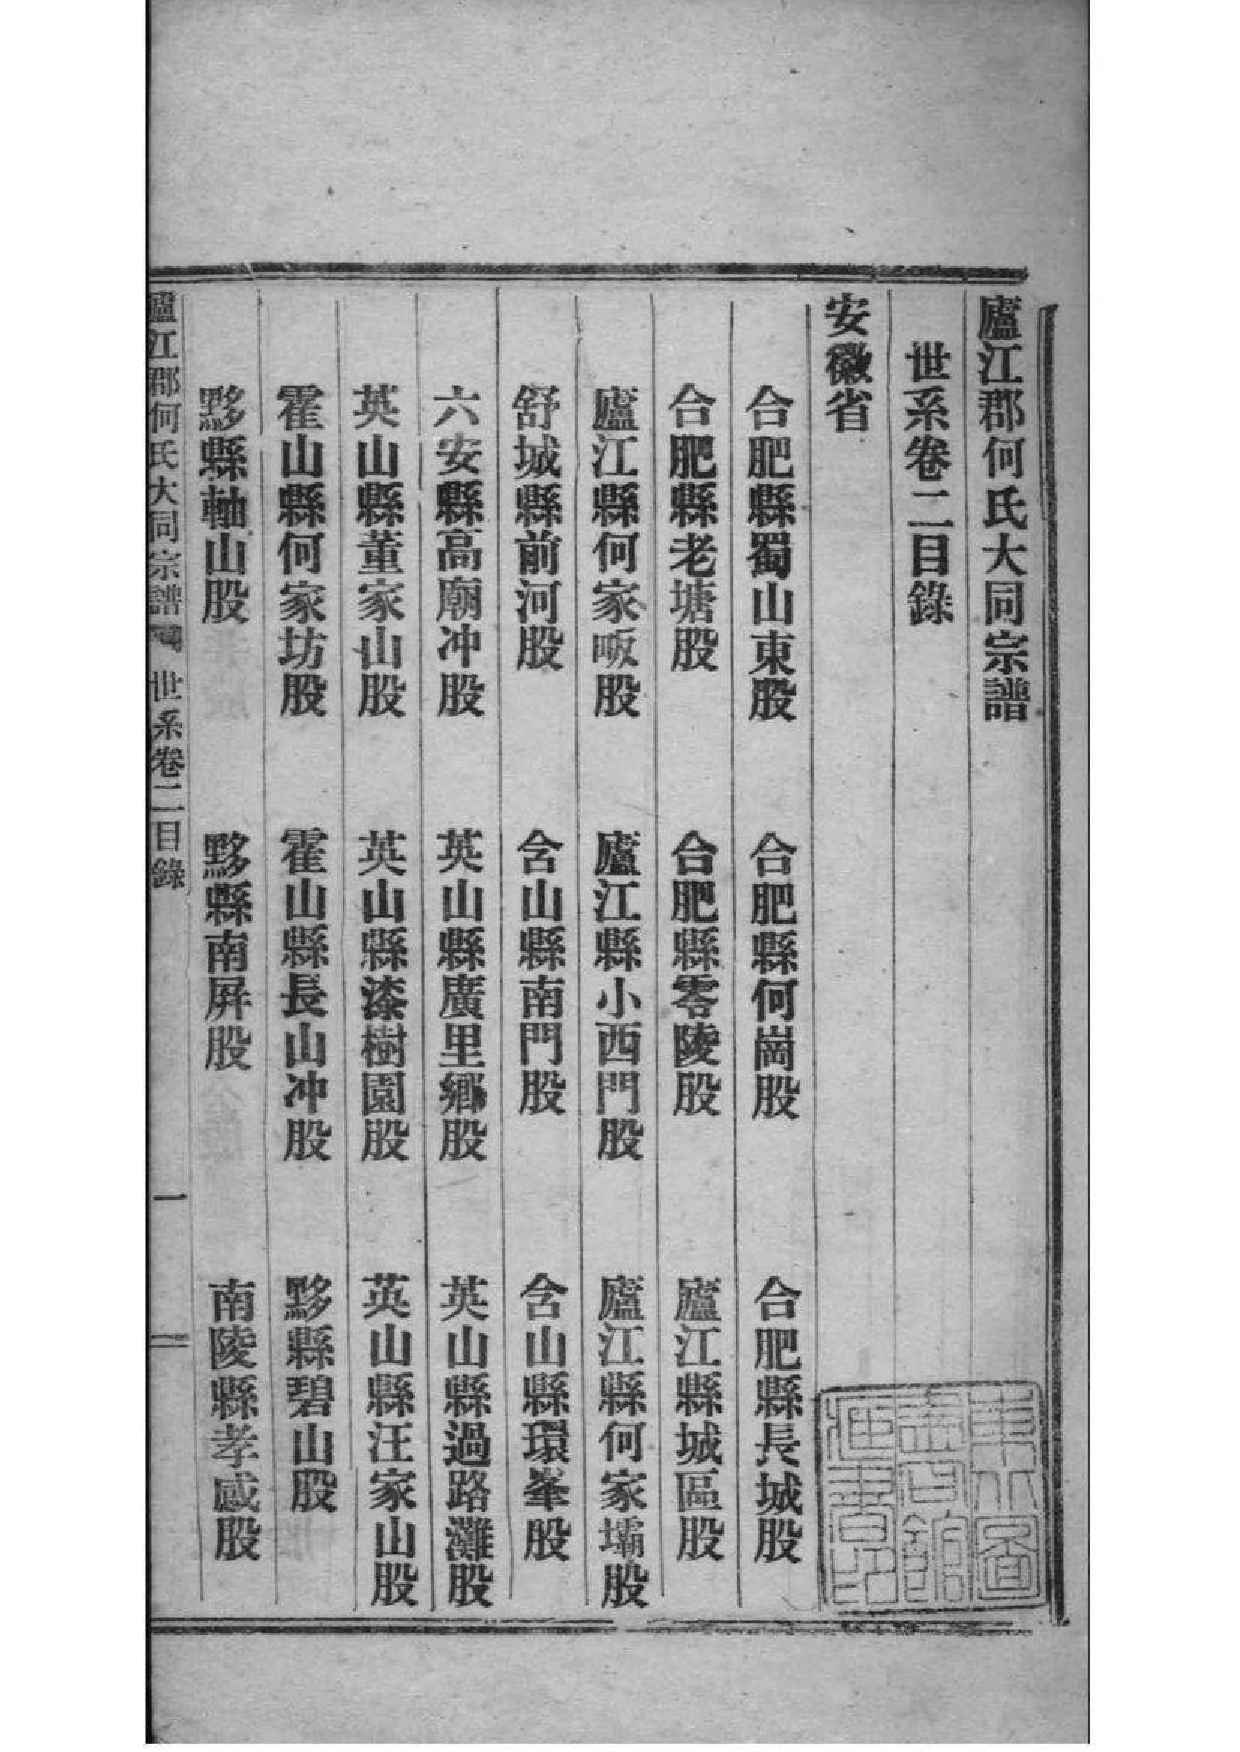 廬江郡何氏大同宗譜
世系卷二目錄
安徽省
合肥縣蜀山東股 合肥縣何崗股 合肥縣長城股
合肥縣老塘股 合肥縣零陵股 廬江縣城區股
廬江縣何家畈股 廬江縣小西門股 廬江縣何家壩股
舒城縣前河股 含山縣南門股 含山縣環峯股
六安縣高廟冲股 英山縣廣里鄉股 英山縣過路灘股
英山縣董家山股 英山縣漆樹園股 英山縣汪家山股
霍山縣何家坊股 霍山縣長山冲股 黟縣碧山股
黟縣軸山股 黟縣南屏股 南陵縣孝感股
廬江郡何氏大同宗譜 世系卷二目錄 一